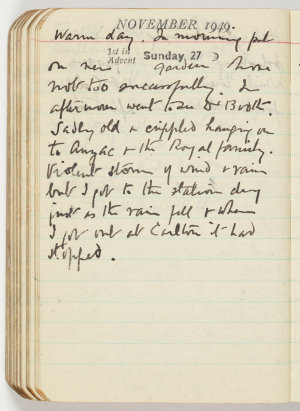 NOVEMBER 1949.
Warm day. In morning put
1st in
Advent
Sunday 27
on new garden hose
not too successfully. In
afternoon went to see Dr Booth.
Sadly old & crippled hanging on
to Anzac & the Royal family.
Violent storm of wind & rain
but I got to the station dry
just as the rain fell & when
I got out at Carlton it had
stopped.